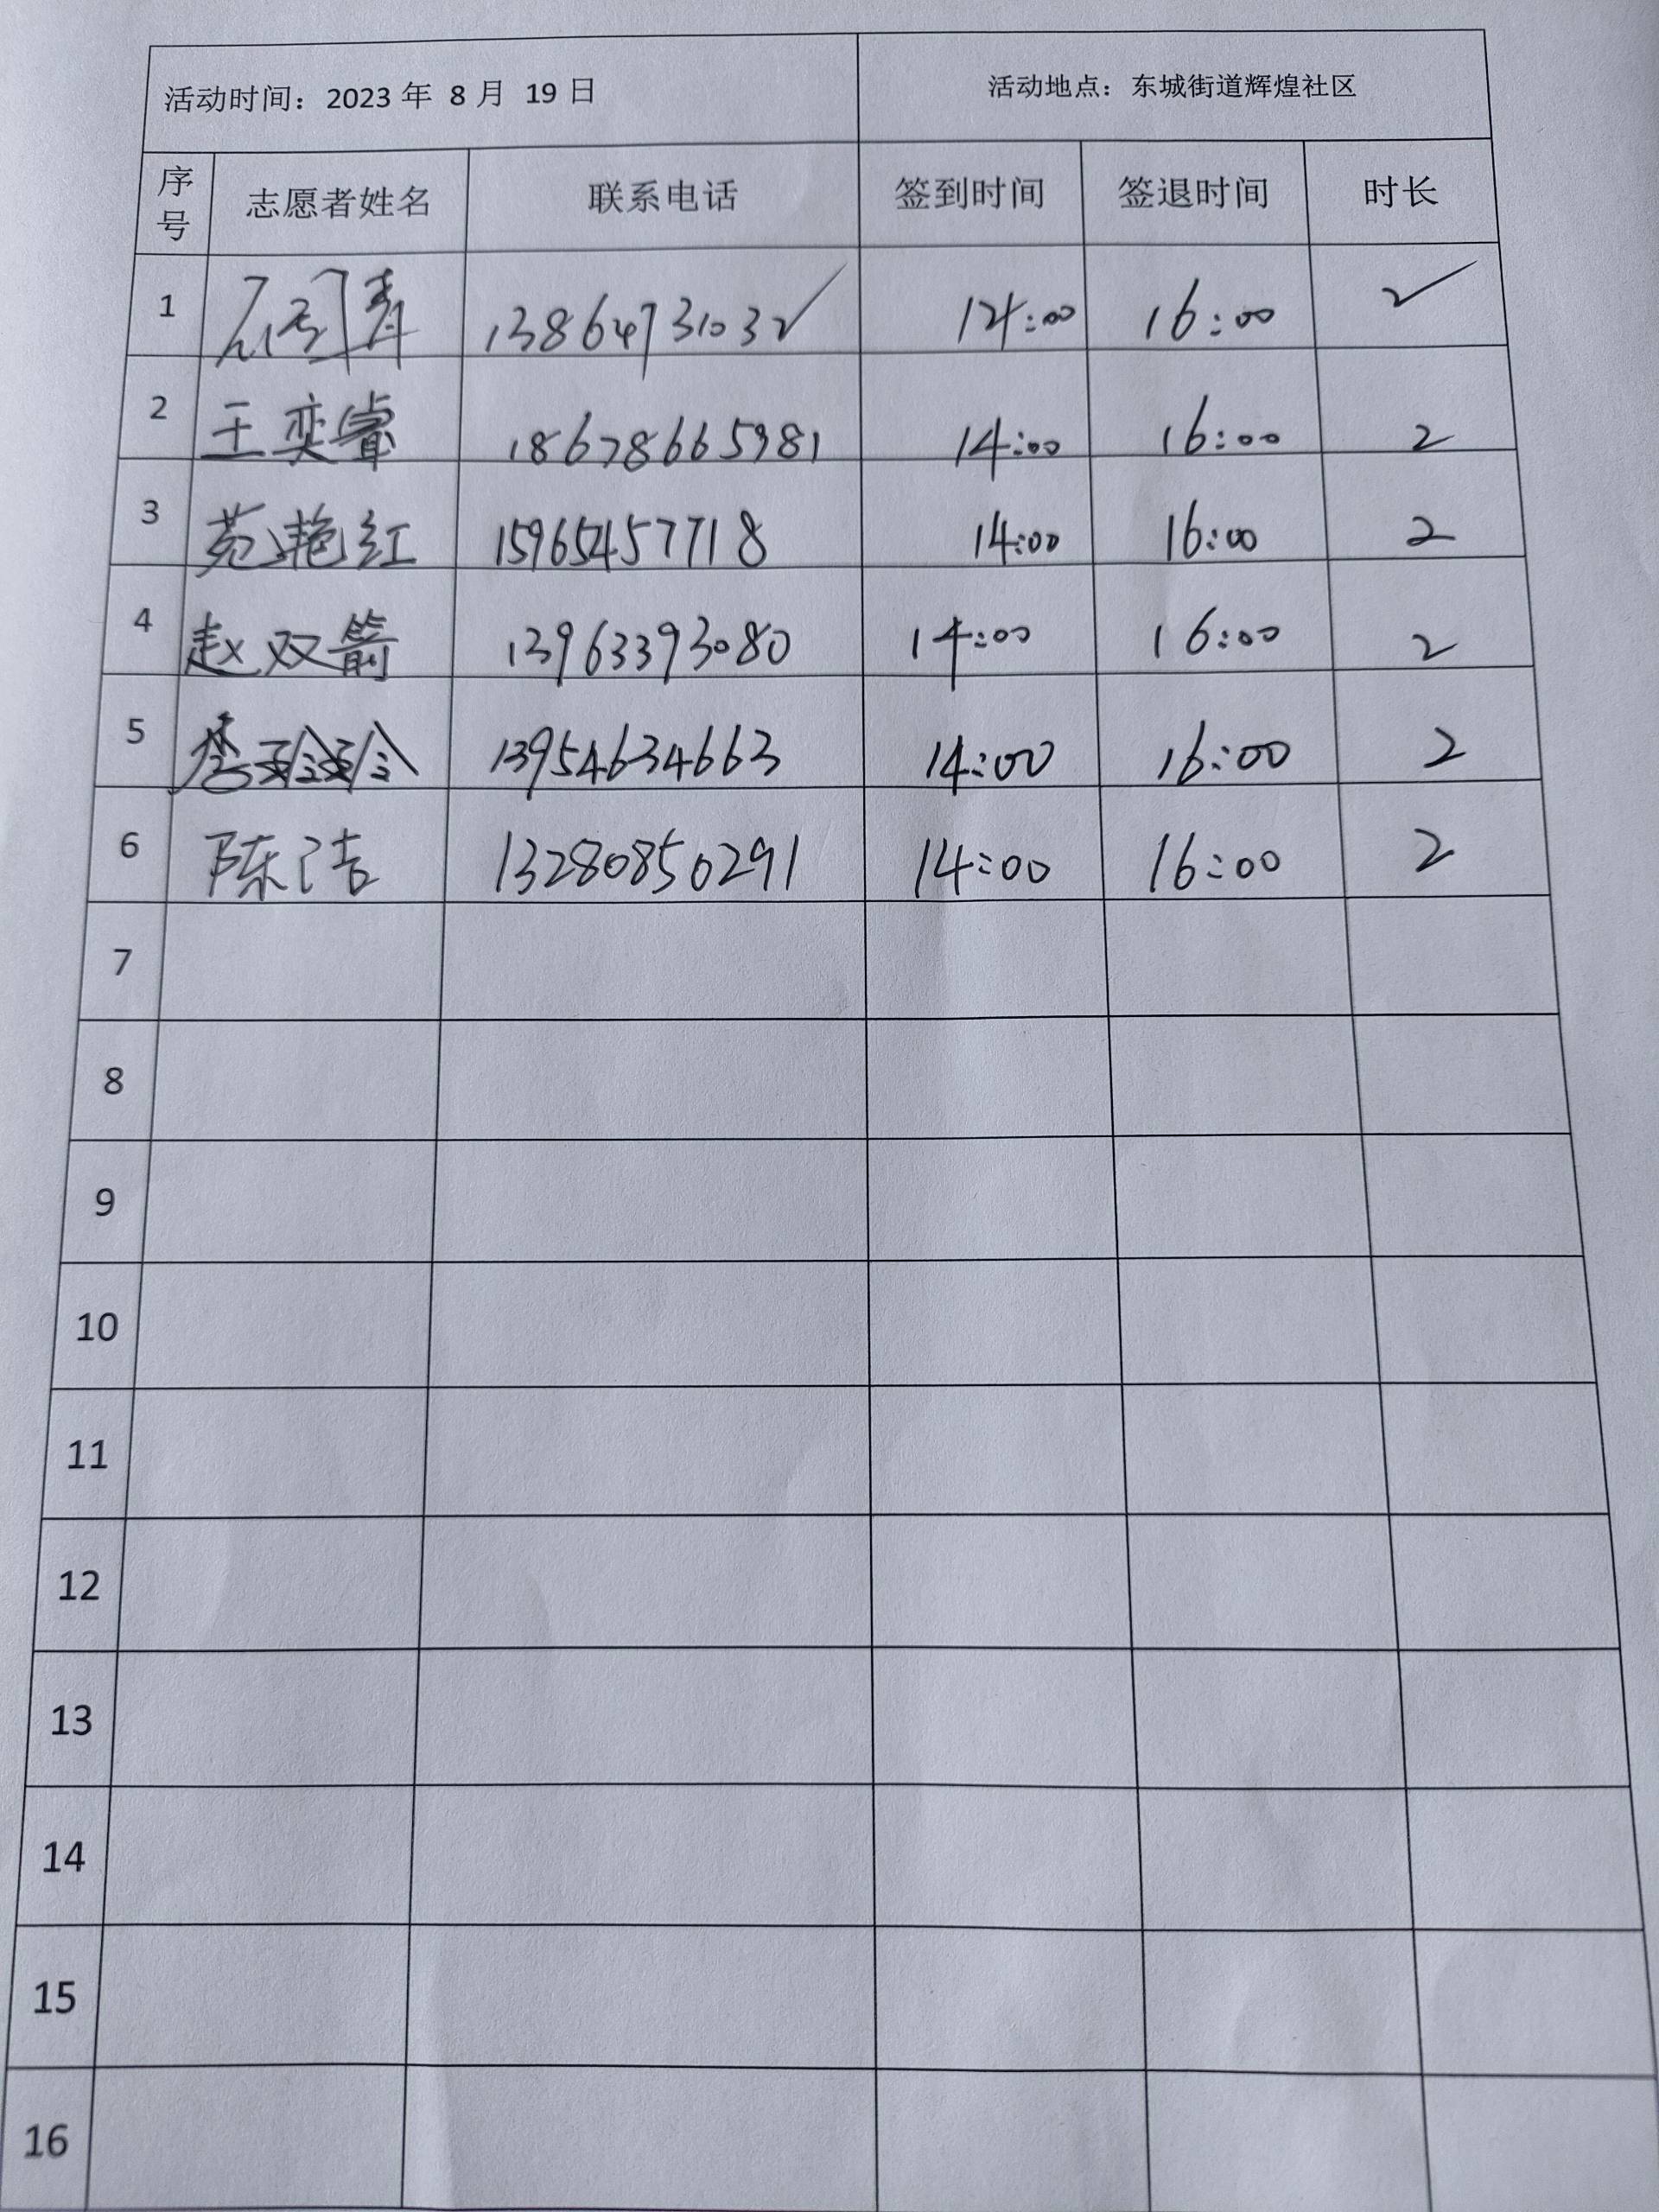 活动时间：2023 年 8 月 19 日 活动地点：东城街道辉煌社区
序号 志愿者姓名 联系电话 签到时间 签退时间 时长
1 13864731032 14:00 16:00 2
2 王奕睿 18678665981 14:00 16:00 2
3 苑艳红 15965457718 14:00 16:00 2
4 赵双箭 13963393080 14:00 16:00 2
5 李玲玲 13954634663 14:00 16:00 2
6 陈洁 13280850291 14:00 16:00 2
7
8
9
10
11
12
13
14
15
16